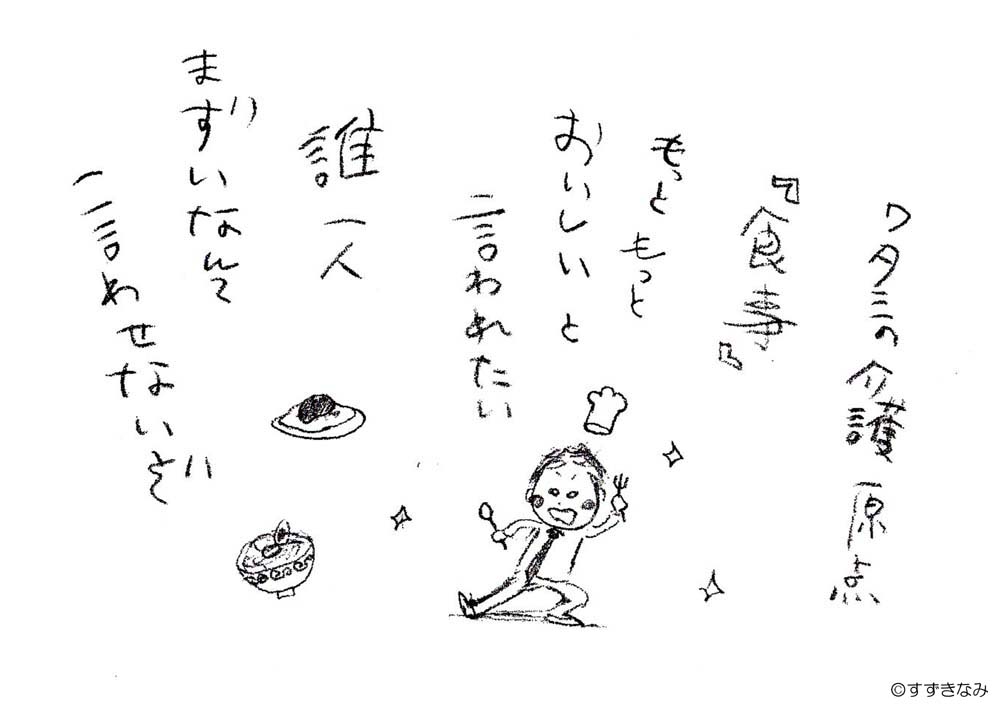 ワタミの介護原点
『食寿』
もっともっと
おいしいと
言われたい
誰一人
まずいなんて
言わせないぞ
©すずきなみ